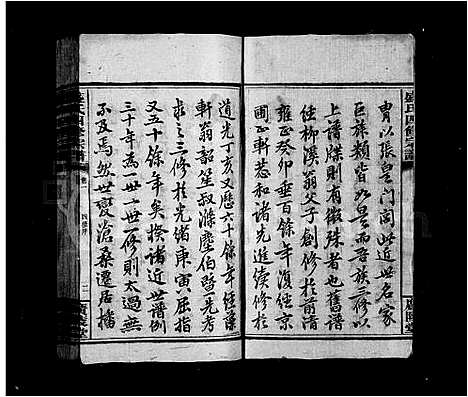 胄以張皇門閥此近世名家
巨族類皆以是而吾族三修以
上譜牒則有微殊者也舊譜
經柳溪翁父子創修於前清
雍正癸卯垂百餘年復經京
圃正軒慈和諸先進續修於
道光丁亥又歷六十餘年經藻
軒翁韶笙叔滌塵伯暨先考
求之三修於光緒庚寅屈指
又五十餘年矣揆諸近世譜例
三十年為一世一世一修則太過無
不及焉然世變滄桑遷居播
盛氏四修宗譜
廣陵堂